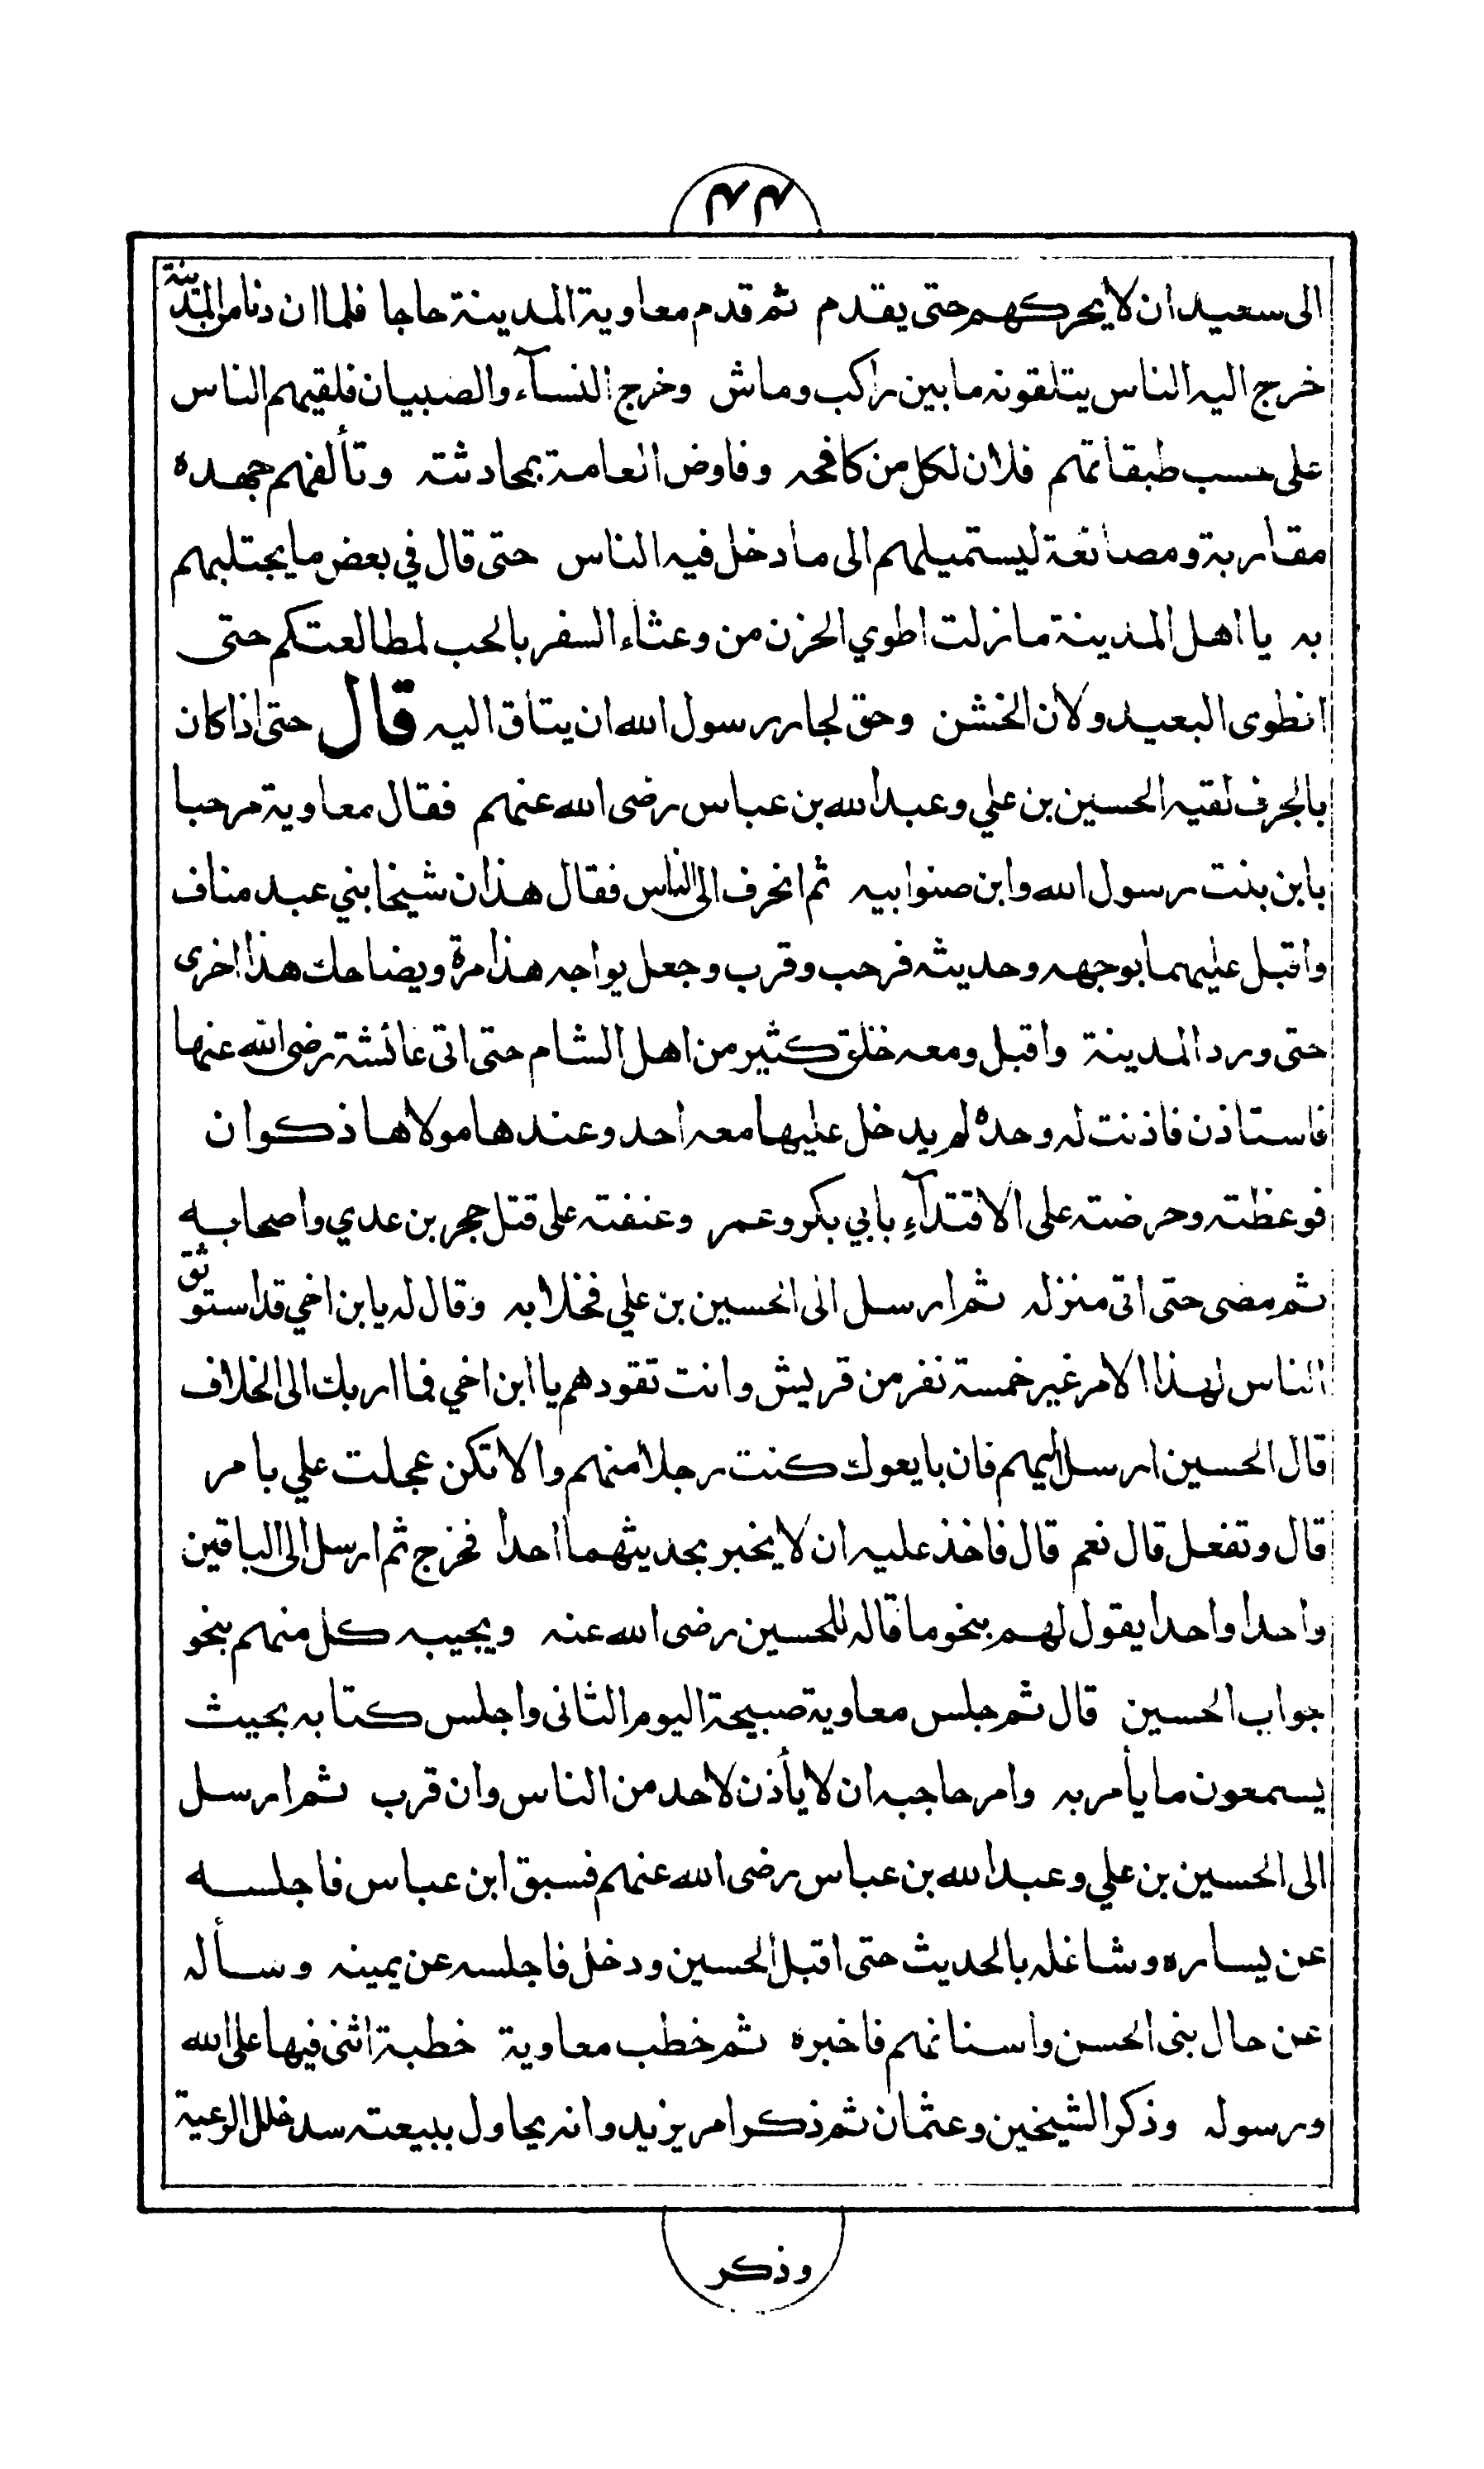 ٤٤
الى سعيد ان لا يحركهم حتى يقدم ثم قدم معاوية المدينة حاجا فلما ان دنا من المدينة
خرج اليه الناس يتلقونه ما بين راكب وماش وخرج النسآء والصبيان فلقيهم الناس
على حسب طبقاتهم فلان لكل من كافحه وفاوض العامة بمحادثته وتألفهم جهده
مقاربة ومصانعة ليستميلهم الى ما دخل فيه الناس حتى قال في بعض ما يجتلبهم
به يا اهل المدينة ما زلت اطوي الحزن من وعثاء السفر بالحب لمطالعتكم حتى
انطوى البعيد ولان الخشن وحق لجار رسول الله ان يتاق اليه قال حتى اذا كان
بالجرف لقيه الحسين بن علي وعبد الله بن عباس رضى الله عنهم فقال معاوية مرحبا
بابن بنت رسول الله وابن صنوابيه ثم انحرف الى الناس فقال هذان شيخا بني عبد مناف
واقبل عليهما بوجهه وحديثه فرحب وقرب وجعل يواجه هذا مرة ويضاحك هذا اخرى
حتى ورد المدينة واقبل ومعه خلق كثير من اهل الشام حتى اتى عائشة رضى الله عنها
فاستاذن فاذنت له وحده لم يدخل عليها معه احد وعندها مولاها ذكوان
فوعظته وحرضته على الاقتدآءِ بابي بكر وعمر وعنفته على قتل حجر بن عدي واصحابه
ثم مضى حتى اتى منزله ثم ارسل الى الحسين بن علي فخلا به وقال له يا بن اخي قد استوثق
الناس لهذا الامر غير خمسة نفر من قريش وانت تقودهم يا ابن اخي فما اربك الى الخلاف
قال الحسين ارسل اليهم فان بايعوك كنت رجلا منهم والا تكن عجلت علي بامر
قال وتفعل قال نعم قال فاخذ عليه ان لا يخبر بحديثهما احدا فخرج ثم ارسل الى الباقين
واحدا واحدا يقول لهم بنحو ما قاله للحسين رضى الله عنه ويجيبه كل منهم بنحو
جواب الحسين قال ثم جلس معاوية صبيحة اليوم الثانى واجلس كتابه بحيث
يسمعون ما يأمر به وامر حاجبه ان لا يأذن لاحد من الناس وان قرب ثم ارسل
الى الحسين بن علي وعبد الله بن عباس رضى الله عنهم فسبق ابن عباس فاجلسه
عن يساره وشاغله بالحديث حتى اقبل الحسين ودخل فاجلسه عن يمينه وسأله
عن حال بنى الحسن واسنانهم فاخبره ثم خطب معاوية خطبة اثنى فيها على الله
ورسوله وذكر الشيخين وعثمان ثم ذكر امر يزيد وانه يحاول ببيعته سد خلل الرعية
وذكر